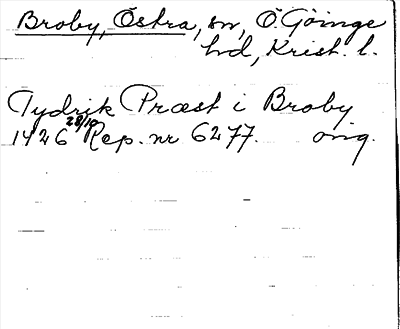 Broby, Östra, sn, Ö. Göinge
hd, Krist. l.
Tydrik Præst i Broby
1426 28/10 Rep. nr 6277. orig.